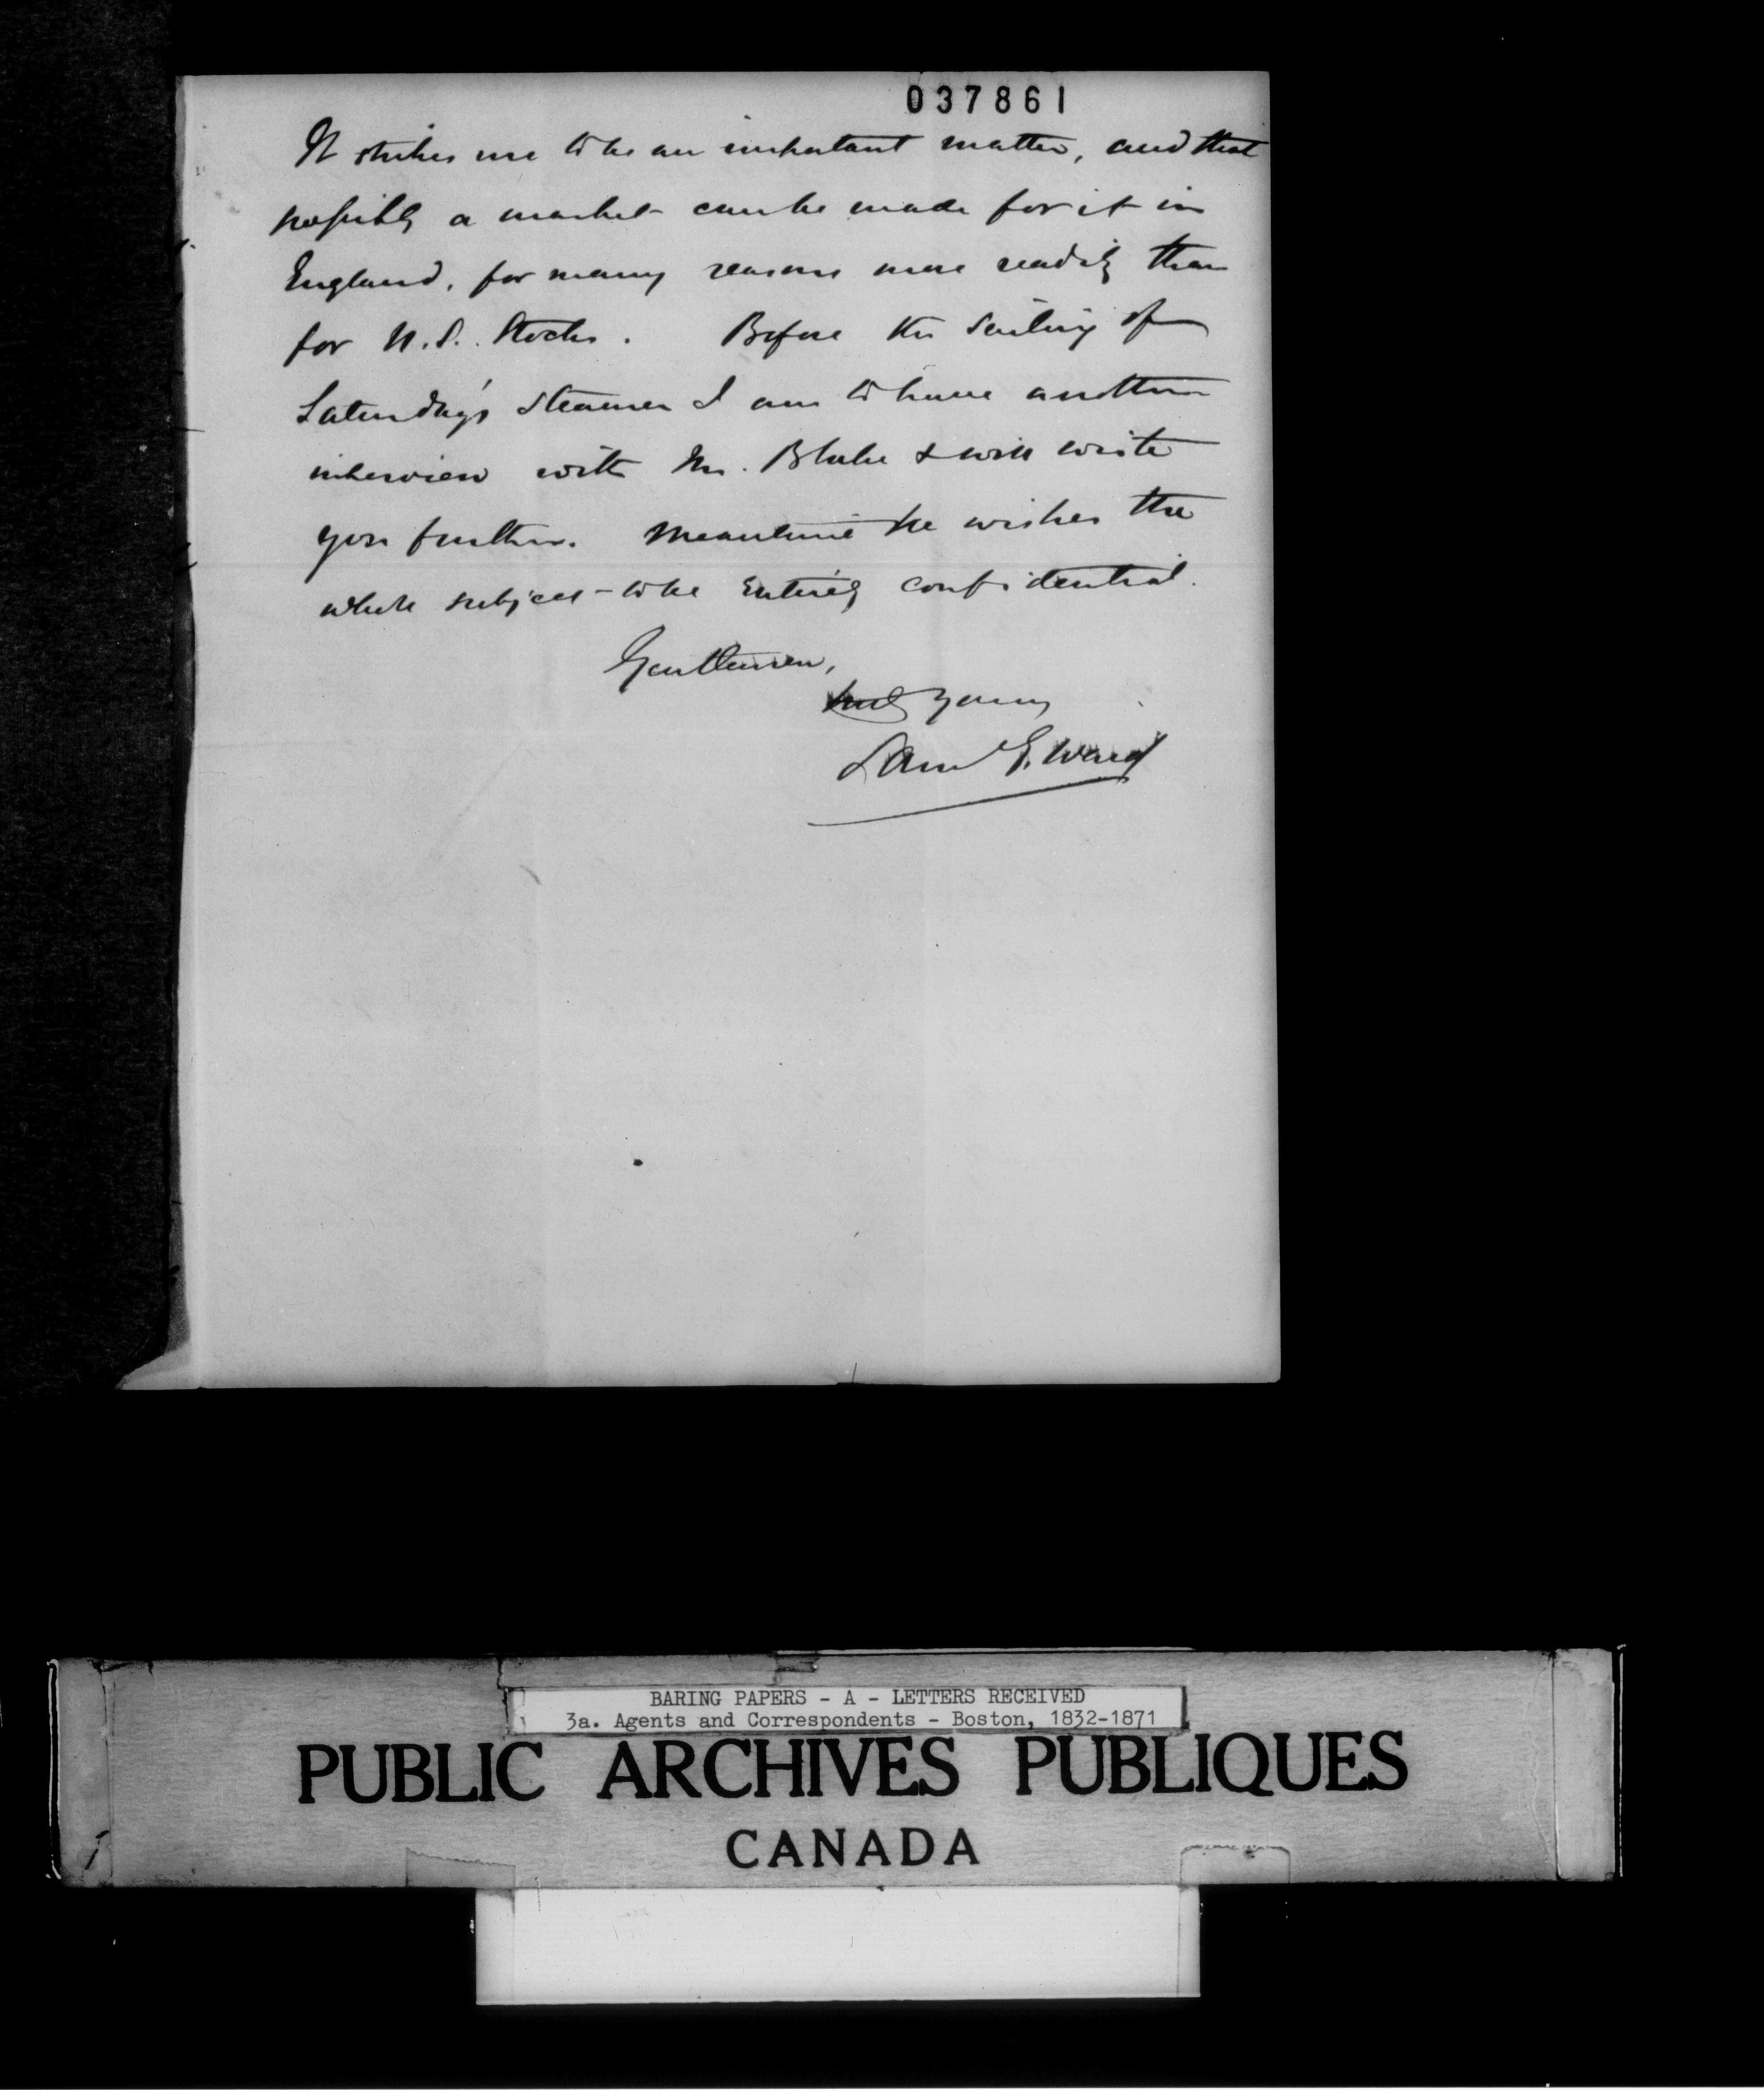 037861
It strikes me to be an important matter, and that
possibly a market can be made for it in
England, for many reasons more readily than
for U.S. Stocks. Before the sailing of
Saturday's steamer I am to have another
interview with Mr. Blake & will write
you further. Meantime he wishes the
whole subject to be entirely confidential.
Gentlemen,
Truly yours
Saml G. Ward
BARING PAPERS - A - LETTERS RECEIVED
3a. Agents and Correspondents - Boston, 1832-1871
PUBLIC ARCHIVES PUBLIQUES
CANADA